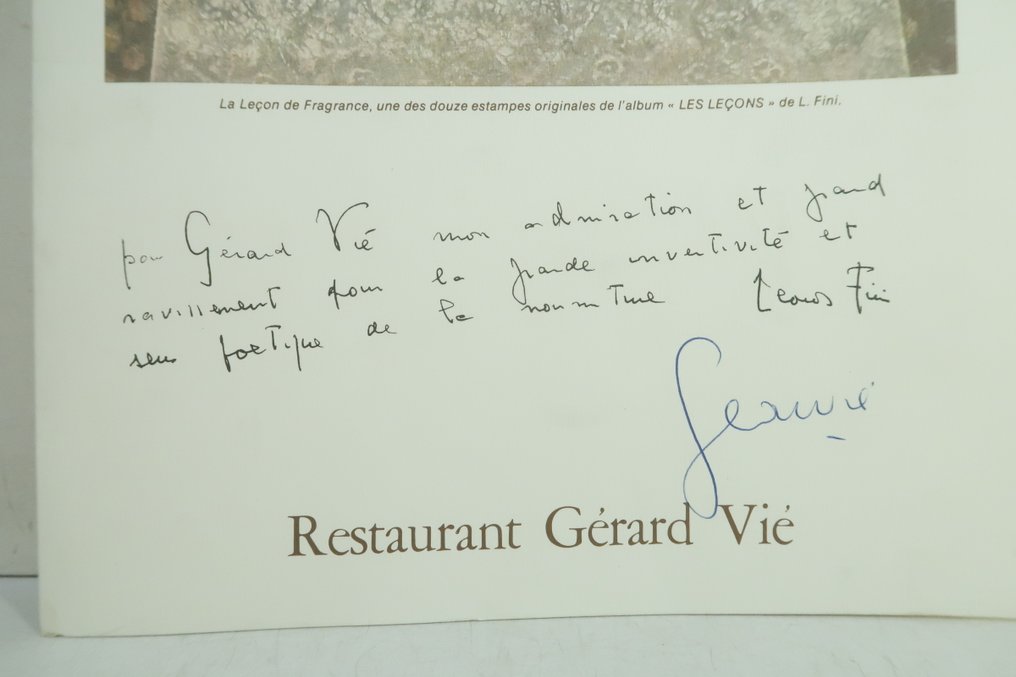 La Leçon de Fragrance, une des douze estampes originales de l'album « LES LEÇONS » de L. Fini.
pour Gérard Vié mon admiration et grand
ravissement pour la grande inventivité et
sens poetique de la nourriture Leonor Fini
Restaurant Gérard Vié